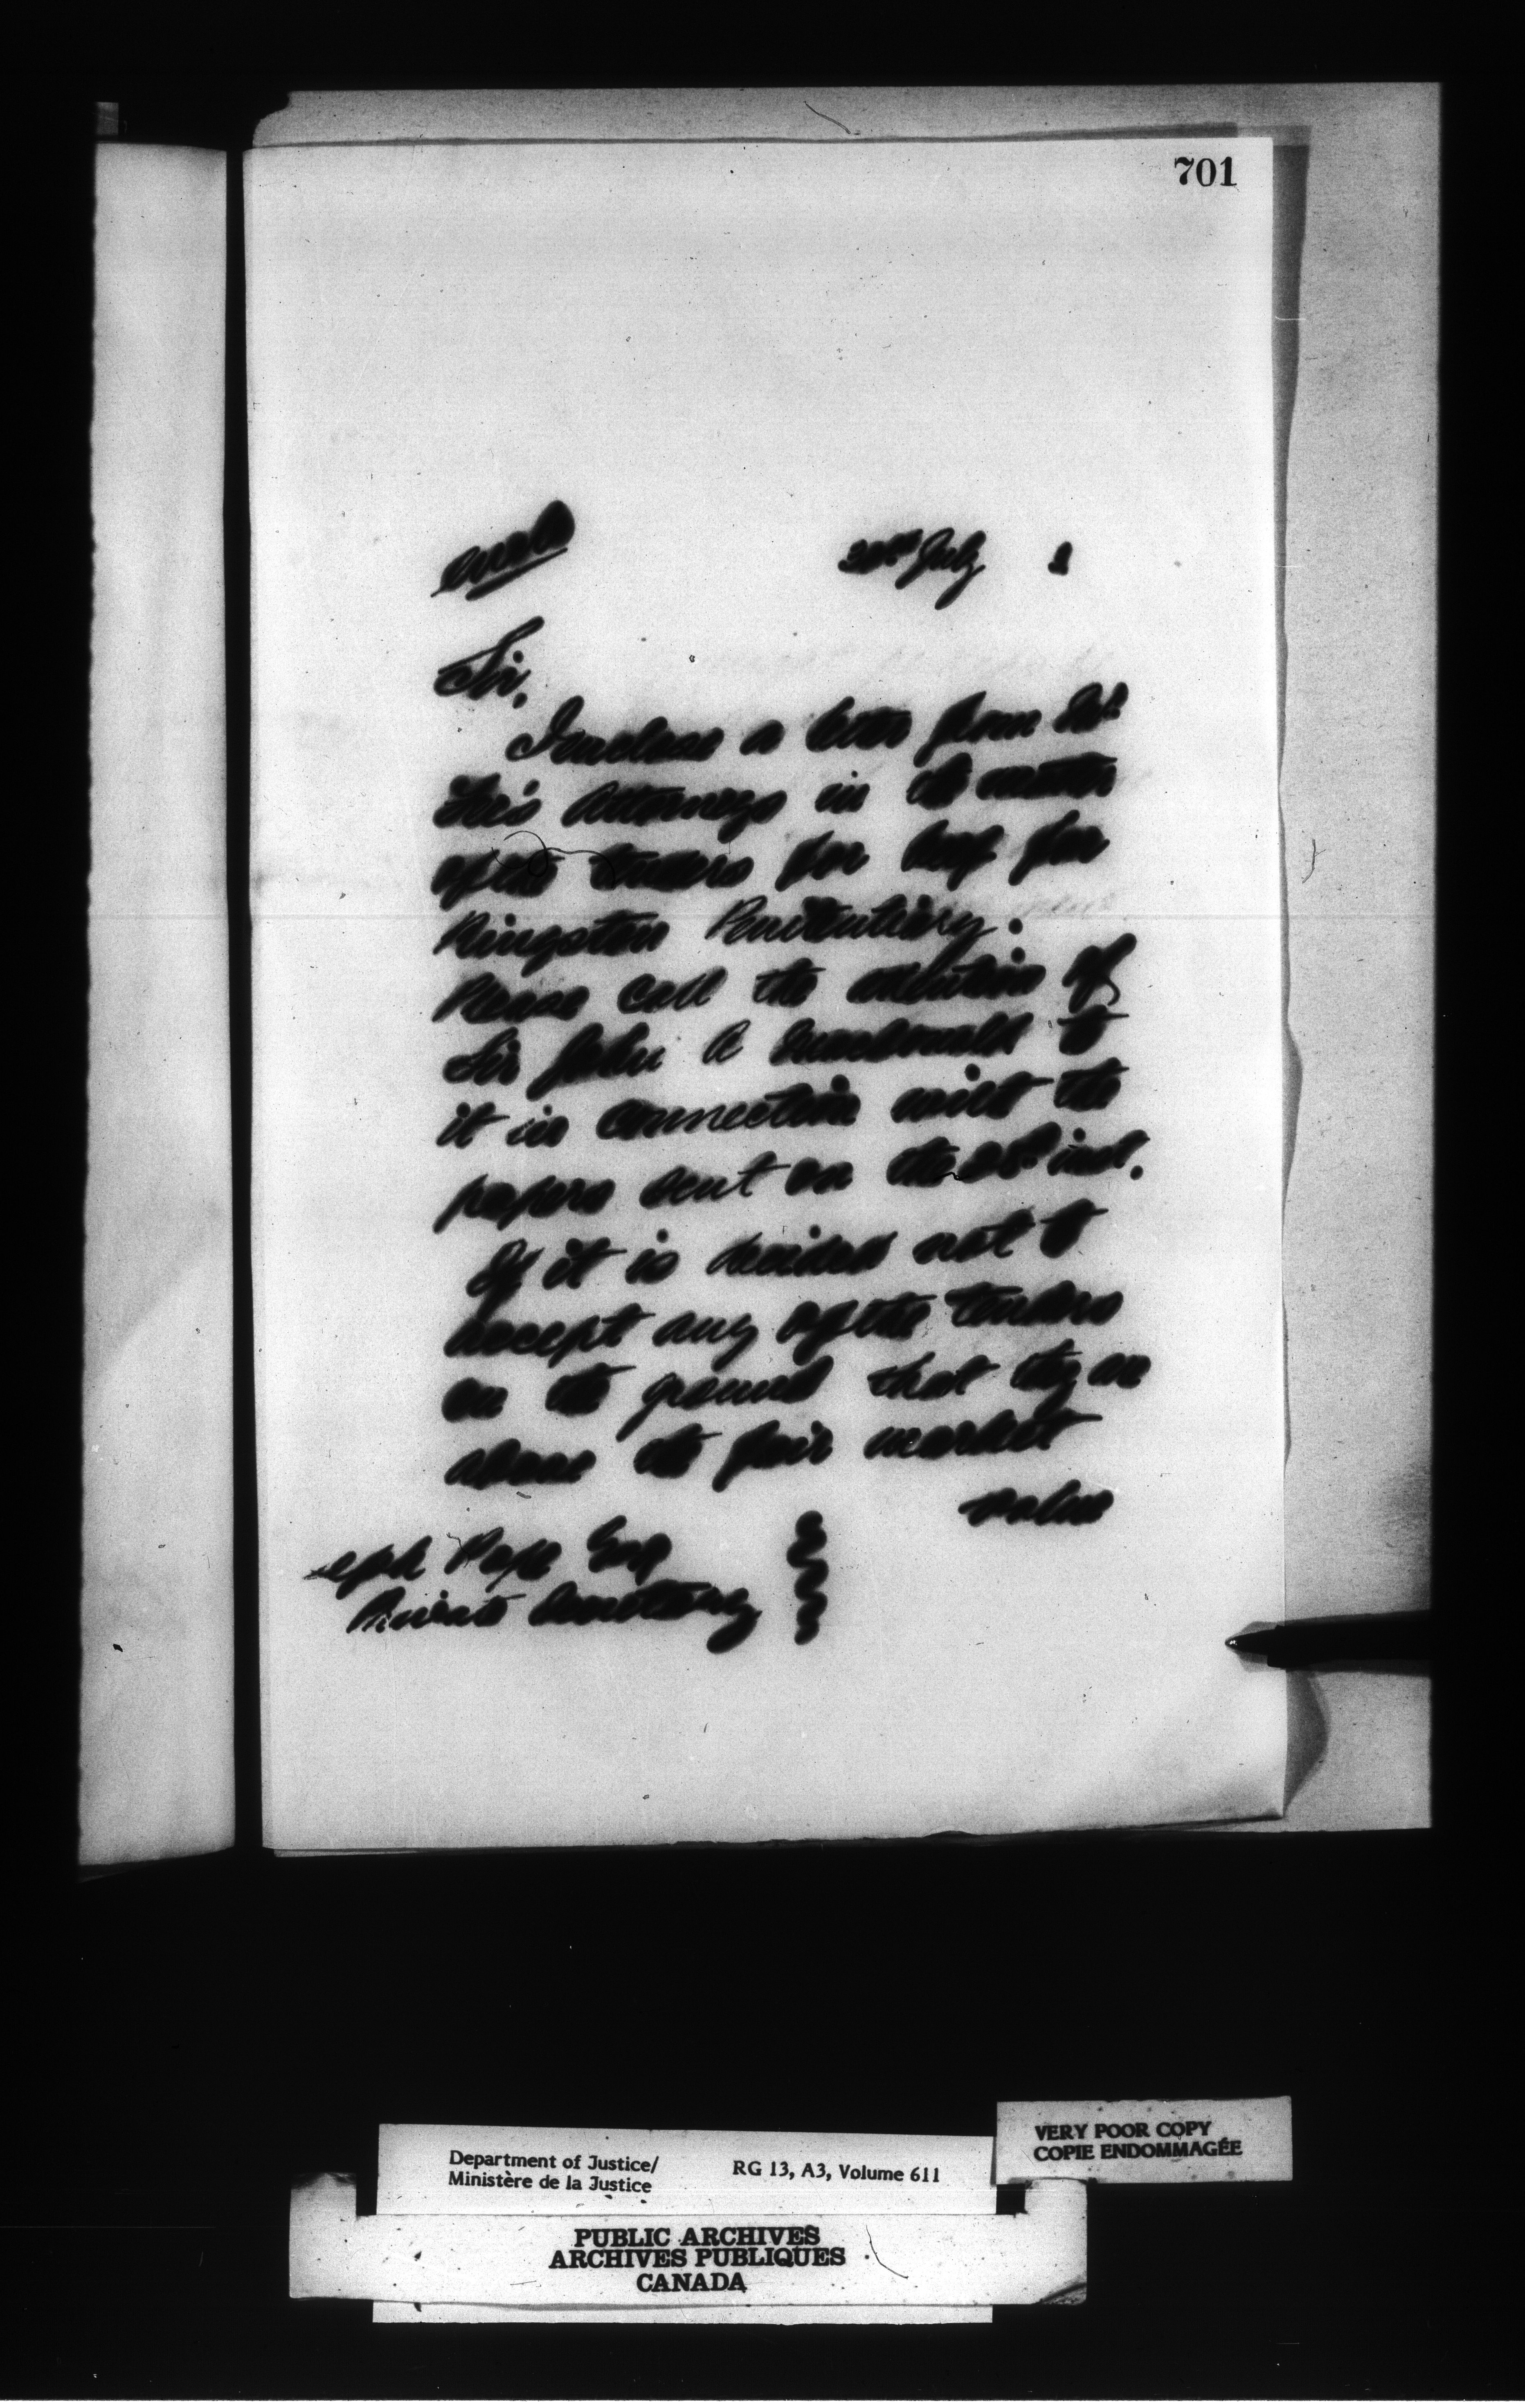 701
30th July
Sir,
I enclose a letter from
Attorneys in the matter
of the tenders for beef for
Kingston Penitentiary.
Please call the attention of
Sir John A Macdonald to
it in connection with the
papers sent on the 28th inst.
If it is decided not to
accept any of the tenders
on the ground that they are
above the fair market
value
eph Pope Esq
Private Secretary
VERY POOR COPY
COPIE ENDOMMAGÉE
Department of Justice/ RG 13, A3, Volume 611
Ministère de la Justice
PUBLIC ARCHIVES
ARCHIVES PUBLIQUES
CANADA